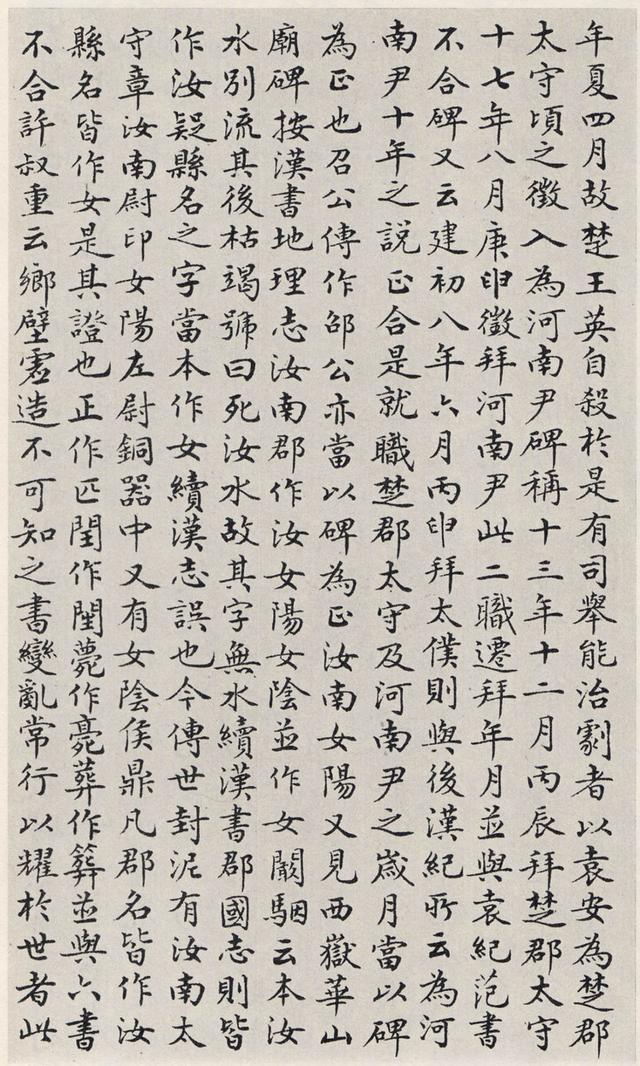 年夏四月故楚王英自殺於是有司舉能治劇者以袁安為楚郡
太守頃之徵入為河南尹碑稱十三年十二月丙辰拜楚郡太守
十七年八月庚申徵拜河南尹此二職遷拜年月並與袁紀范書
不合碑又云建初八年六月丙申拜太僕則與後漢紀所云為河
南尹十年之說正合是就職楚郡太守及河南尹之歲月當以碑
為正也召公傳作邵公亦當以碑為正汝南女陽又見西嶽華山
廟碑按漢書地理志汝南郡作汝女陽女陰並作女闞駰云本汝
水別流其後枯竭號曰死汝水故其字無水續漢書郡國志則皆
作汝疑縣名之字當本作女續漢志誤也今傳世封泥有汝南太
守章汝南尉印女陽左尉銅器中又有女陰侯鼎凡郡名皆作汝
縣名皆作女是其證也正作匹閏作閠薨作薧葬作葬並與六書
不合許叔重云鄉壁虛造不可知之書變亂常行以耀於世者此